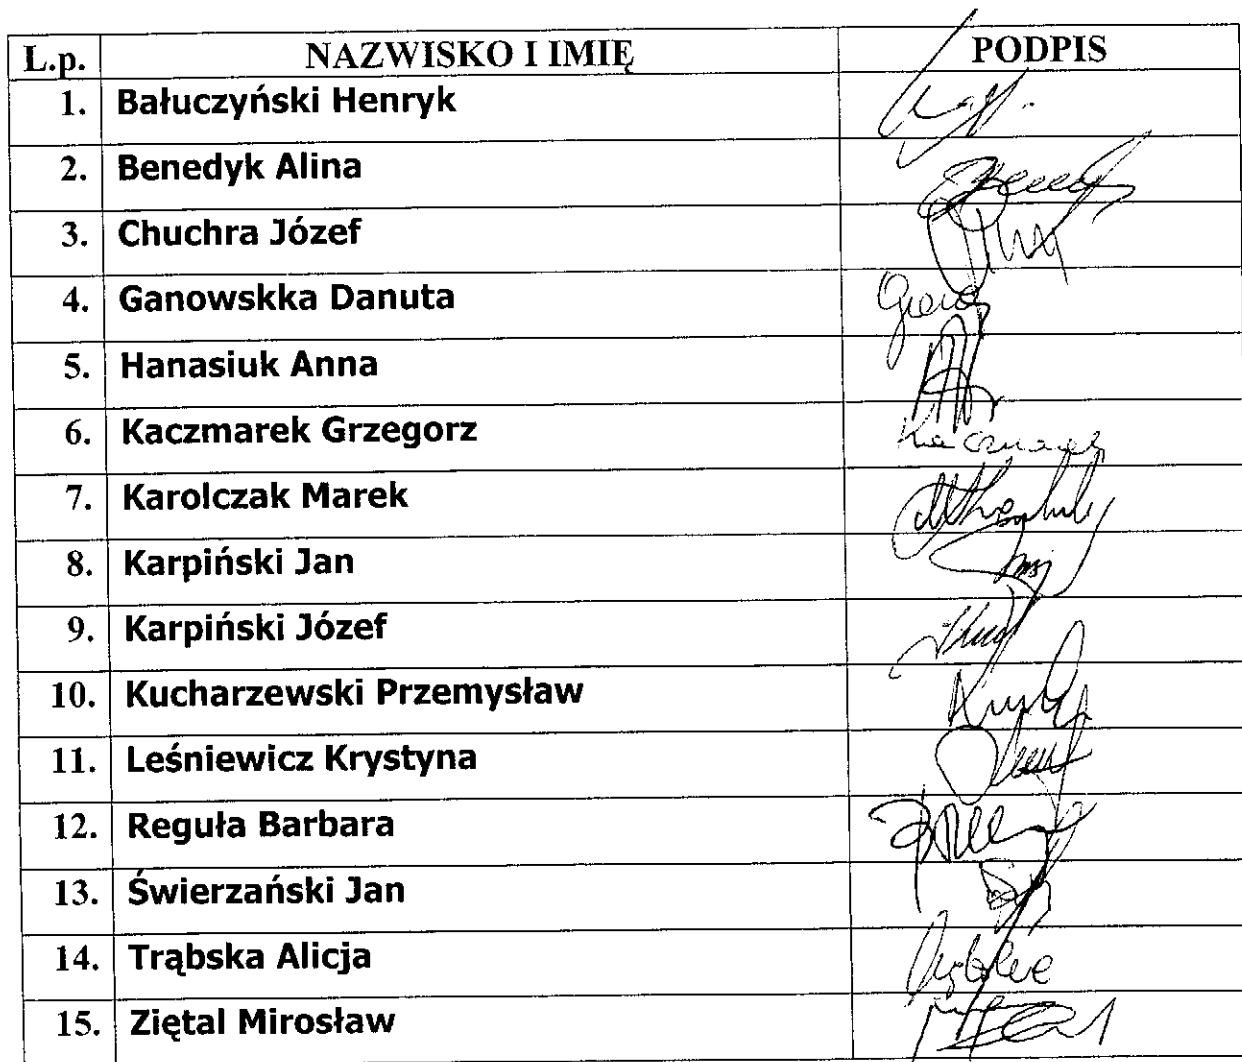 L.p. NAZWISKO I IMIĘ PODPIS
1. Bałuczyński Henryk
2. Benedyk Alina
3. Chuchra Józef
4. Ganowskka Danuta
5. Hanasiuk Anna
6. Kaczmarek Grzegorz Kaczmarek
7. Karolczak Marek
8. Karpiński Jan
9. Karpiński Józef
10. Kucharzewski Przemysław
11. Leśniewicz Krystyna
12. Reguła Barbara
13. Świerzański Jan
14. Trąbska Alicja
15. Ziętal Mirosław